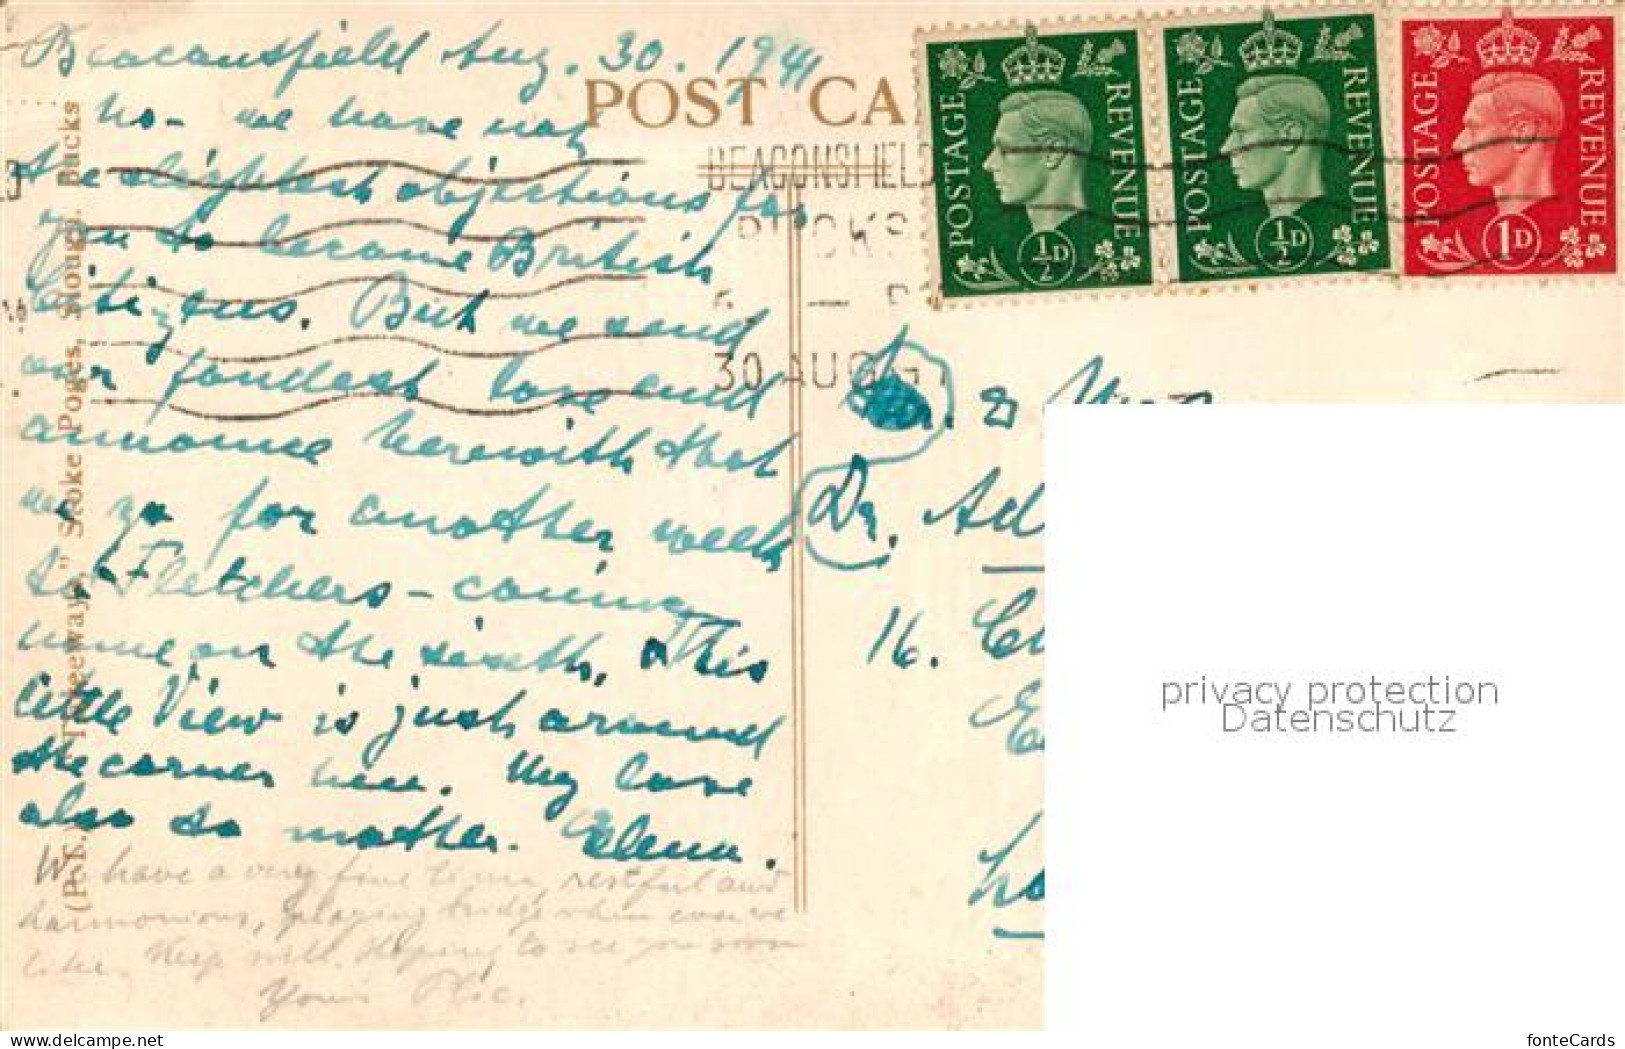 Beaconsfield Aug. 30. 1941
POST CA
No - we have not
the slightest objections for
you to become British
Citizens. But we send
our fondest love and
announce herewith that
we go for another week
to Fletchers - coming
home on the sixth. This
little View is just around
the corner here. My love
also to mother. Elena.
We have a very fine time, restful and
harmonious, playing bridge when ever we
like. Keep well. Hoping to see you soon
Yours
(P.T.) "Threeways," Stoke Poges, Slough. Bucks
BEACONSFIELD
BUCKS
30 AUG
POSTAGE REVENUE
½D
POSTAGE REVENUE
½D
POSTAGE REVENUE
1D
Dr. Ad
16.
Lo
privacy protection
Datenschutz
www.delcampe.net
fonteCards